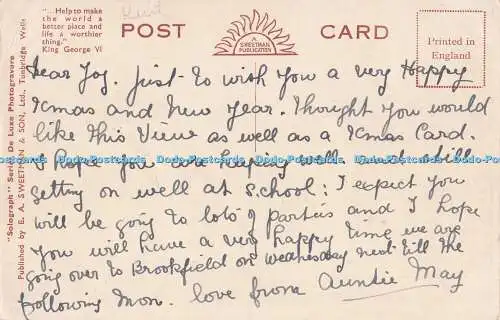 "...Help to make
the world a
better place and
life a worthier
thing."
King George VI
Kent
POST CARD
A
SWEETMAN
PUBLICATION
Printed in
England
"Solograph" Series De Luxe Photogravure
Published by E. A. SWEETMAN & SON, Ltd., Tunbridge Wells
Dear Joy. Just to wish you a very Happy
Xmas and New Year. Thought you would
like this View as well as a Xmas Card.
I hope you are keeping well and still
Dodo-Postcards Dodo-Postcards Dodo-Postcards Dodo-Postcards Dodo-Postcards
getting on well at School: I expect you
will be going to lots of parties and I hope
you will have a very happy time we are
going over to Brookfield on Wednesday next till the
following Mon. love from Auntie May